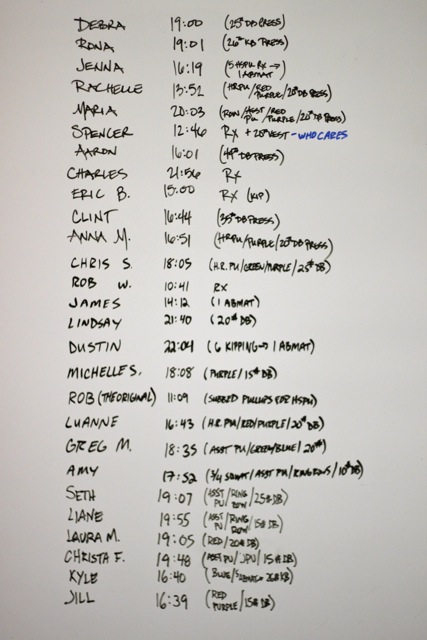 DEBRA 19:00 (25# DB PRESS)
RONA 19:01 (26# KB PRESS)
JENNA 16:19 (5 HSPU RX → 1 ABMAT)
RACHELLE 13:52 (HRPU/RED PURPLE/20# DB PRESS)
MARIA 20:03 (ROW/ASST/RED PU/PURPLE/20# DB PRESS)
SPENCER 12:46 RX + 20# VEST - WHO CARES
AARON 16:01 (45# DB PRESS)
CHARLES 21:56 RX
ERIC B. 15:00 RX (KIP)
CLINT 16:44 (35# DB PRESS)
ANNA M. 16:51 (HRPU/PURPLE/20# DB PRESS)
CHRIS S. 18:05 (H.R. PU/GREEN/PURPLE/25# DB)
ROB W. 10:41 RX
JAMES 14:12 (1 ABMAT)
LINDSAY 21:40 (20# DB)
DUSTIN 22:04 (6 KIPPING → 1 ABMAT)
MICHELLE S. 18:08 (PURPLE/15# DB)
ROB (THE ORIGINAL) 11:09 (SUBBED PULLUPS FOR HSPU)
LUANNE 16:43 (H.R. PU/RED/PURPLE/20# DB)
GREG M. 18:35 (ASST PU/GREEN/BLUE/20#)
AMY 17:52 (3/4 SQUAT/ASST PU/RING ROWS/10# DB)
SETH 19:07 (ASST PU/RING ROW/25# DB)
LIANE 19:55 (ASST PU/RING ROW/15# DB)
LAURA M. 19:05 (RED/20# DB)
CHRISTA F. 19:48 (ASST PU/JPU/15# DB)
KYLE 16:40 (BLUE/ 26# KB)
JILL 16:39 (RED PURPLE/15# DB)